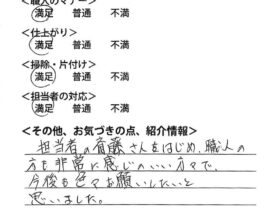 <職人のマナー>
満足 普通 不満
<仕上がり>
満足 普通 不満
<掃除・片付け>
満足 普通 不満
<担当者の対応>
満足 普通 不満
<その他、お気づきの点、紹介情報>
担当者の斉藤さんをはじめ、職人の
方も非常に感じのいい方々で、
今後も色々お願いしたいと
思いました。